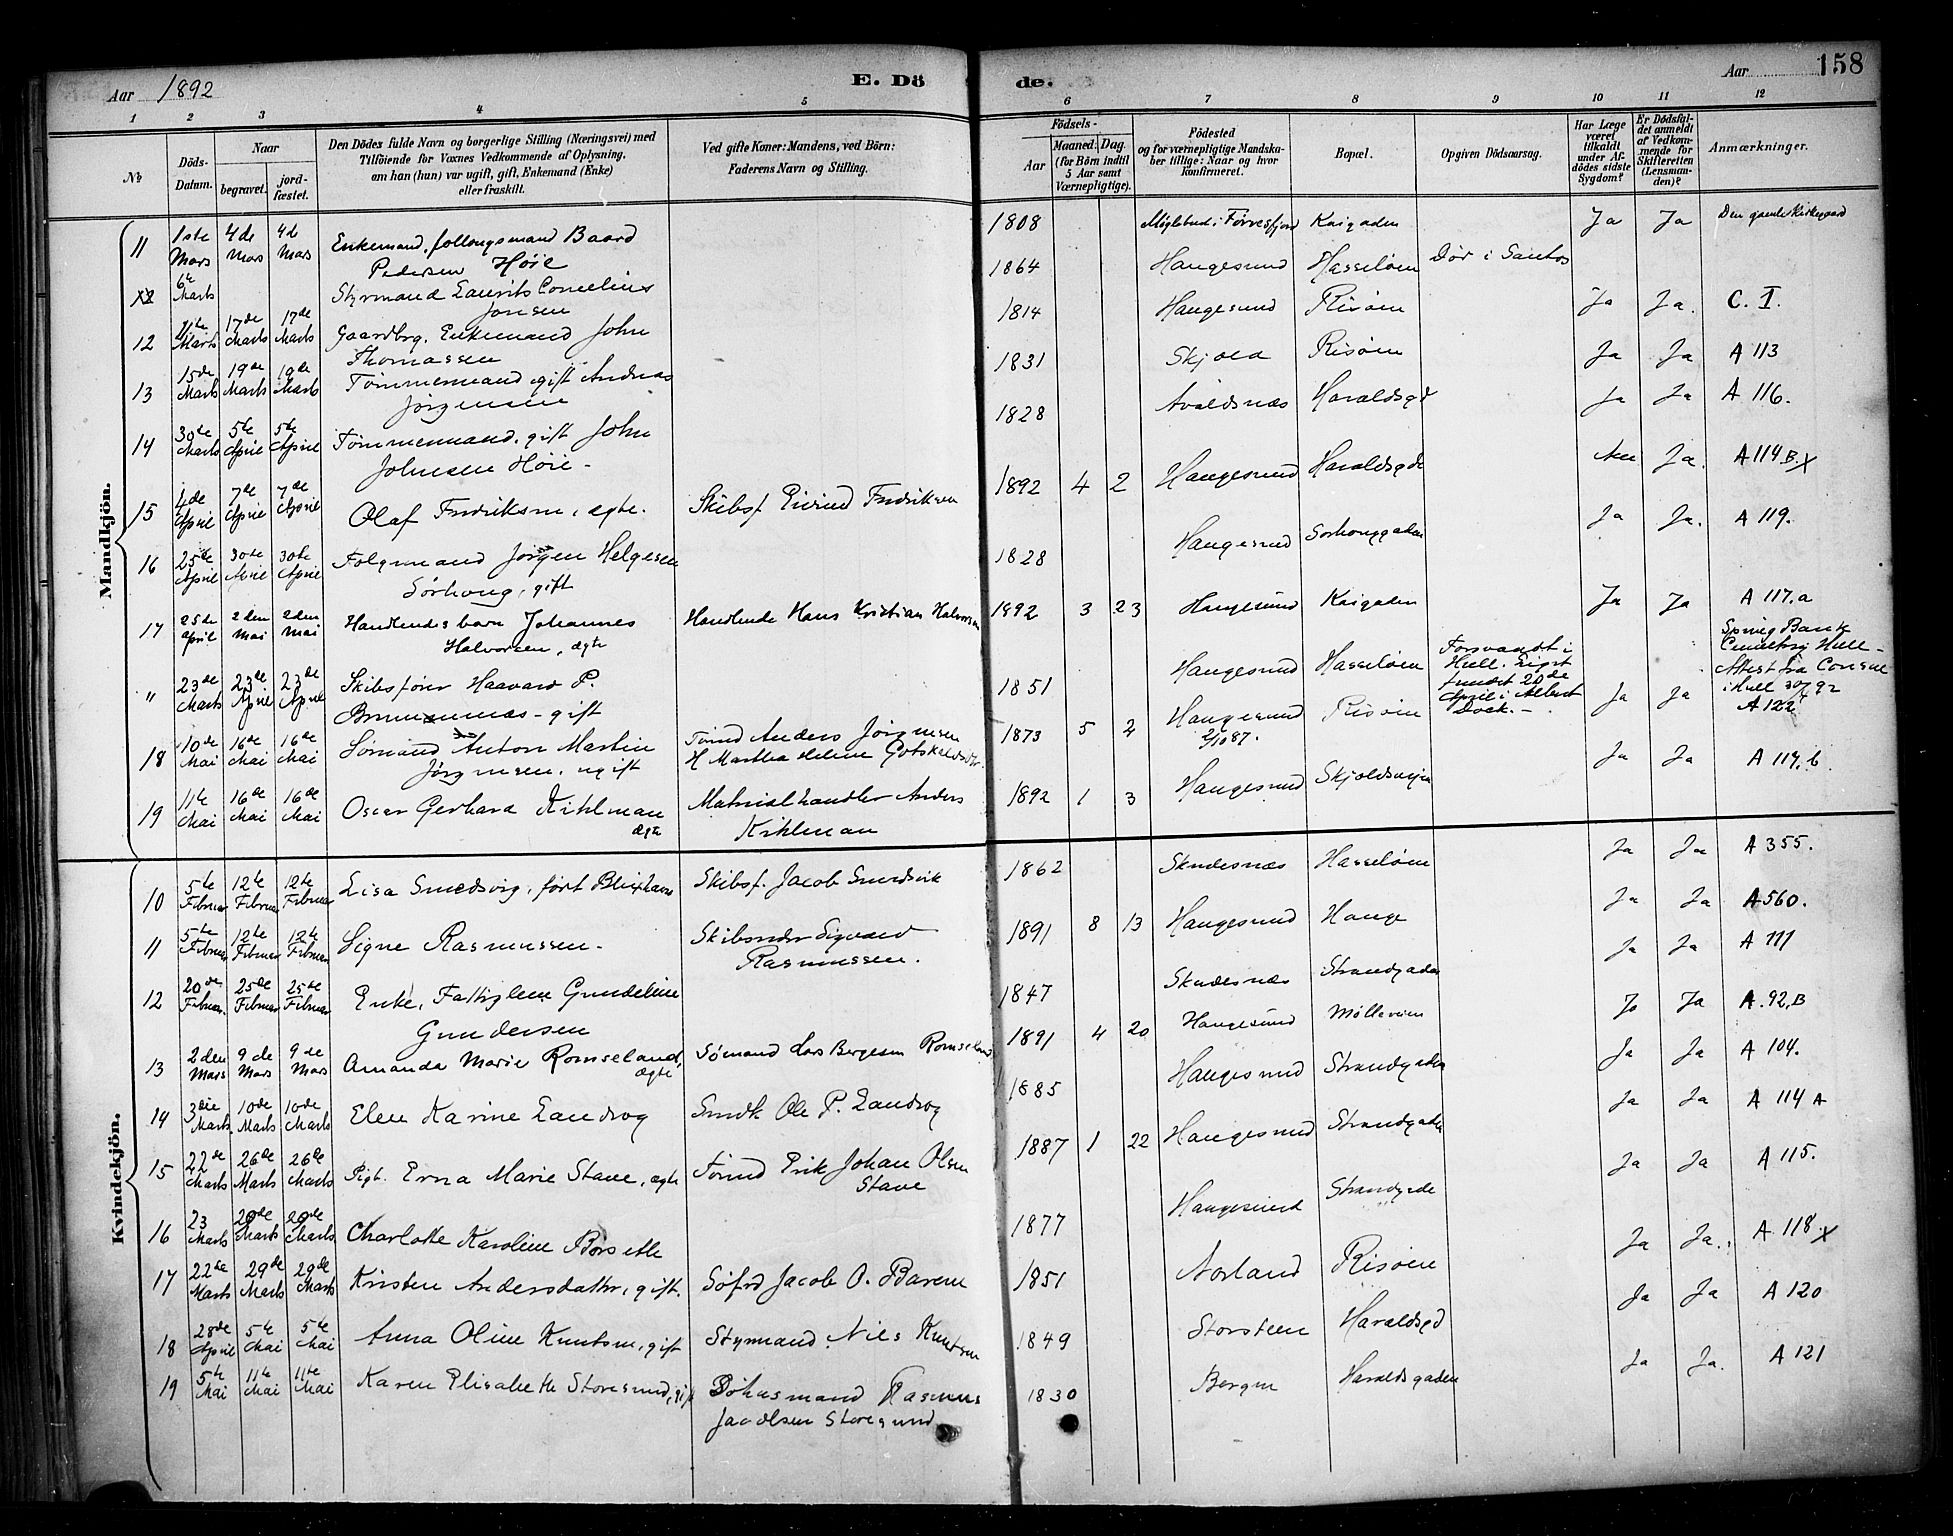 Aar 1892
E. Dö de.
Aar 158
1 2 3 4 5 6 7 8 9 10 11 12
№
Döds-Datum.
Naar
begravet.
jord-fæstet.
Den Dödes fulde Navn og borgerlige Stilling (Næringsvei) med
Tilföiende for Voxnes Vedkommende af Oplysning,
om han (hun) var ugift, gift, Enkemand (Enke)
eller fraskilt.
Ved gifte Koner: Mandens, ved Börn:
Faderens Navn og Stilling.
Födsels-
Aar
Maaned. Dag.
(for Börn indtil
5 Aar samt
Værnepligtige).
Födested
og for værnepligtige Mandska-
ber tillige: Naar og hvor
konfirmeret.
Bopæl.
Opgiven Dödsaarsag.
Har Læge
været
tilkaldt
under Af-
dödes sidste
Sygdom?
Er Dödsfal-
det anmeldt
af Vedkom-
mende for
Skifteretten
(Lensman-
den)?
Anmærkninger.
Mandkjön.
11 1ste Mars 4de Mars 4de Mars Enkemand, Baard Pedersen Høie 1808 Førresfjord Kaigaden Ja Ja Den gamle Kirkegaard
6te Marts Styrmand Laurits Cornelius Jonsen 1864 Haugesund Hasseløen Dør i Santos
12 11te Marts 17de Marts 17de Marts Gaardbrg. Enkemand John Thomassen 1814 Haugesund Risøen Ja Ja. C. I.
13 15de Marts 19de Marts 19de Marts Tømmermand gift Andreas Jørgensen 1831 Skjold Risøen Ja Ja A 113
14 30te Marts 5te April 5te April Tømmermand, gift John Johnsen Høie - 1828 Avaldsnæs Haraldsgd Ja Ja A 116.
15 4de April 7de April 7de April Olaf Fredriksen, ægte. Skibsf. Eivind Fredriksen 1892 4 2 Haugesund Haraldsgde Nei Ja. A 114 B. X
16 25de April 30te April 30te April Jørgen Helgesen Sørhoug, gift 1828 Haugesund Sørhouggaden Ja Ja. A 119.
17 25de April 2den Mai 2den Mai Handlendes barn Johannes Halvorsen, ægte Handlende Hans Kristian Halvorsen 1892 3 23 Haugesund Kaigaden Ja Ja A 117.a
" 23de Marts 23de April 23de April Skibsfører Haavard P. - gift 1851 Haugesund Hasseløen Forsvandt i Hull. Liget fundet 20de April i Albert Dock. - Ja Ja Spring Bank Cemetery Hull - Attest fra Consul i Hull 30/4 92 A 122
18 10de Mai 16de Mai 16de Mai Sømand Anton Martin Jørgensen, ugift Tømd Anders Jørgensen H Martha Helene Gotskalksdtr. 1873 5 2 Haugesund 2/10 87. Risøen Ja Ja A 117.b
19 11te Mai 16de Mai 16de Mai Oscar Gerhard Kihlman ægte Materialhandler Anders Kihlman 1892 1 3 Haugesund Skjoldsveien
Kvindekjön.
10 5te Februar 12te Februar 12te Februar Lisa Smedsvig, født Blixhavn Skibsf. Jacob Smedsvik 1862 Skudesnæs Hasseløen Ja Ja A 355.
11 5te Februar 12te Februar 12te Februar Signe Rasmussen - Sigvard Rasmussen. 1891 8 13 Haugesund Hauge Ja Ja A 560.
12 20de Februar 25de Februar 25de Februar Enke, Fattiglem Gundeline Gundersen 1847 Skudesnæs Strandgaden Ja Ja A 111
13 2den Mars 9de Mars 9de Mars Amanda Marie Romseland, ægte Sømand Lars Bergesen Romseland 1891 4 20 Haugesund Mølleveien Ja Ja A. 92, B
14 3die Marts. 10de Marts 10de Marts Elen Karine Landrog Smed Ole P. Landrog 1885 Haugesund Strandgaden Ja Ja A 104.
15 22de Marts 26de Marts 26de Marts Pigb. Erna Marie Stave, ægte Tømd Erik Johan Olsen Stave 1887 1 22 Haugesund Strandgaden Ja Ja A 114 A
16 23 Marts 29de Marts 29de Marts Charlotte Karoline Børseth 1877 Haugesund Strandgade Ja Ja A 115.
17 22de Marts 29de Marts 29de Marts Kristen Andersdatter, gift. Jacob O. Barem 1851 Norland Risøen Ja Ja. A 118. X
18 28de April 5te Mai 5te Mai Anna Oline Knutsen, gift Styrmand Nils Knutsen 1849 Storsteen Haraldsgd Ja Ja A 120
19 5te Mai 11te Mai 11te Mai Karen Elisabeth Storesund, gift Rasmus Jacobsen Storesund 1830 Bergen Haraldsgaden Ja Ja. A 121